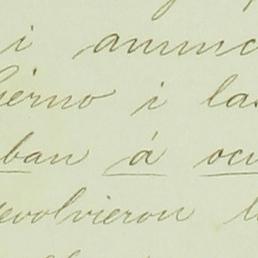 i anunc
ierno i las
ban á ocu
evolvieron l